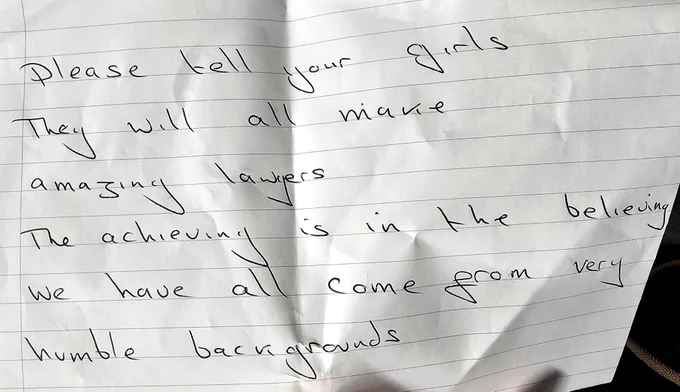 Please tell your girls
They will all make
amazing lawyers
The achieving is in the believing
we have all come from very
humble backgrounds